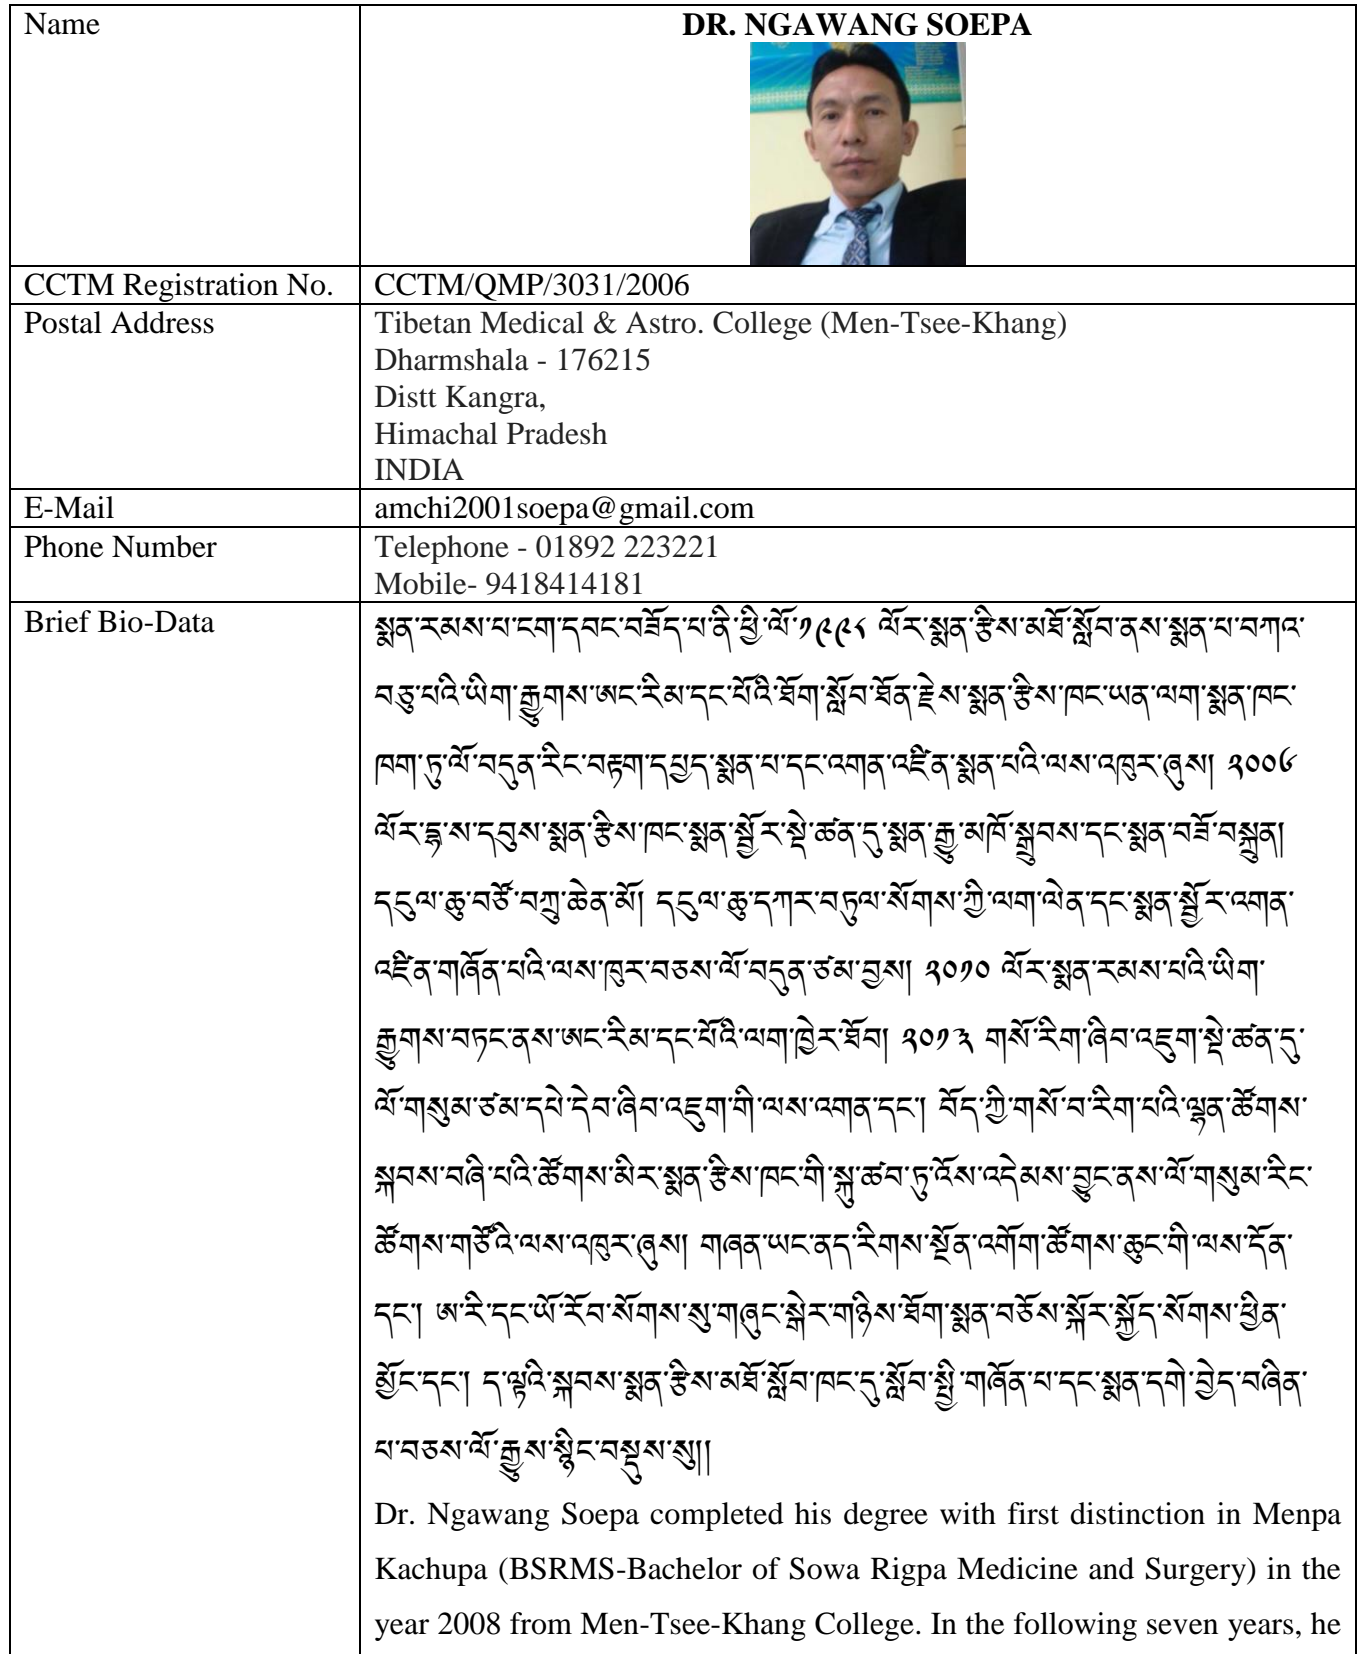 Name
DR. NGAWANG SOEPA
CCTM Registration No.
CCTM/QMP/3031/2006
Postal Address
Tibetan Medical & Astro. College (Men-Tsee-Khang)
Dharmshala - 176215
Distt Kangra,
Himachal Pradesh
INDIA
E-Mail
amchi2001soepa@gmail.com
Phone Number
Telephone - 01892 223221
Mobile- 9418414181
Brief Bio-Data
སྨན་རམས་པ་ངག་དབང་བཟོད་པ་ནི་ཕྱི་ལོ་༡༩༩༨ ལོར་སྨན་རྩིས་མཐོ་སློབ་ནས་སྨན་པ་བཀའ་
བཅུ་པའི་ཡིག་རྒྱུགས་ཨང་རིམ་དང་པོའི་ཐོག་སློབ་ཐོན་རྗེས་སྨན་རྩིས་ཁང་ཡན་ལག་སྨན་ཁང་
ཁག་ཏུ་ལོ་བདུན་རིང་བརྟག་དཔྱད་སྨན་པ་དང་འགན་འཛིན་སྨན་པའི་ལས་འཁུར་ཞུས། ༢༠༠༦
ལོར་དྷ་ས་དབུས་སྨན་རྩིས་ཁང་སྨན་སྦྱོར་སྡེ་ཚན་དུ་སྨན་རྒྱུ་མཁོ་སྒྲུབས་དང་སྨན་བཟོ་བསྐྲུན།
དངུལ་ཆུ་བཙོ་བཀྲུ་ཆེན་མོ། དངུལ་ཆུ་དཀར་བཏུལ་སོགས་ཀྱི་ལག་ལེན་དང་སྨན་སྦྱོར་འགན་
འཛིན་གཞོན་པའི་ལས་ཁུར་བཅས་ལོ་བདུན་ཙམ་བྱས། ༢༠༡༠ ལོར་སྨན་རམས་པའི་ཡིག་
རྒྱུགས་བཏང་ནས་ཨང་རིམ་དང་པོའི་ལག་ཁྱེར་ཐོབ། ༢༠༡༣ གསོ་རིག་ཞིབ་འཇུག་སྡེ་ཚན་དུ་
ལོ་གསུམ་ཙམ་དཔེ་དེབ་ཞིབ་འཇུག་གི་ལས་འགན་དང་། བོད་ཀྱི་གསོ་བ་རིག་པའི་ལྷན་ཚོགས་
སྐབས་བཞི་པའི་ཚོགས་མིར་སྨན་རྩིས་ཁང་གི་སྐུ་ཚབ་ཏུ་འོས་འདེམས་བྱུང་ནས་ལོ་གསུམ་རིང་
ཚོགས་གཙོའི་ལས་འཁུར་ཞུས། གཞན་ཡང་ནད་རིགས་སྔོན་འགོག་ཚོགས་ཆུང་གི་ལས་དོན་
དང་། ཨ་རི་དང་ཡོ་རོབ་སོགས་སུ་གཞུང་སྒེར་གཉིས་ཐོག་སྨན་བཅོས་སྐོར་སྐྱོད་སོགས་ཕྱིན་
མྱོང་དང་། ད་ལྟའི་སྐབས་སྨན་རྩིས་མཐོ་སློབ་ཁང་དུ་སློབ་སྤྱི་གཞོན་པ་དང་སྨན་དགེ་བྱེད་བཞིན་
པ་བཅས་ལོ་རྒྱུས་སྙིང་བསྡུས་སུ།།
Dr. Ngawang Soepa completed his degree with first distinction in Menpa
Kachupa (BSRMS-Bachelor of Sowa Rigpa Medicine and Surgery) in the
year 2008 from Men-Tsee-Khang College. In the following seven years, he